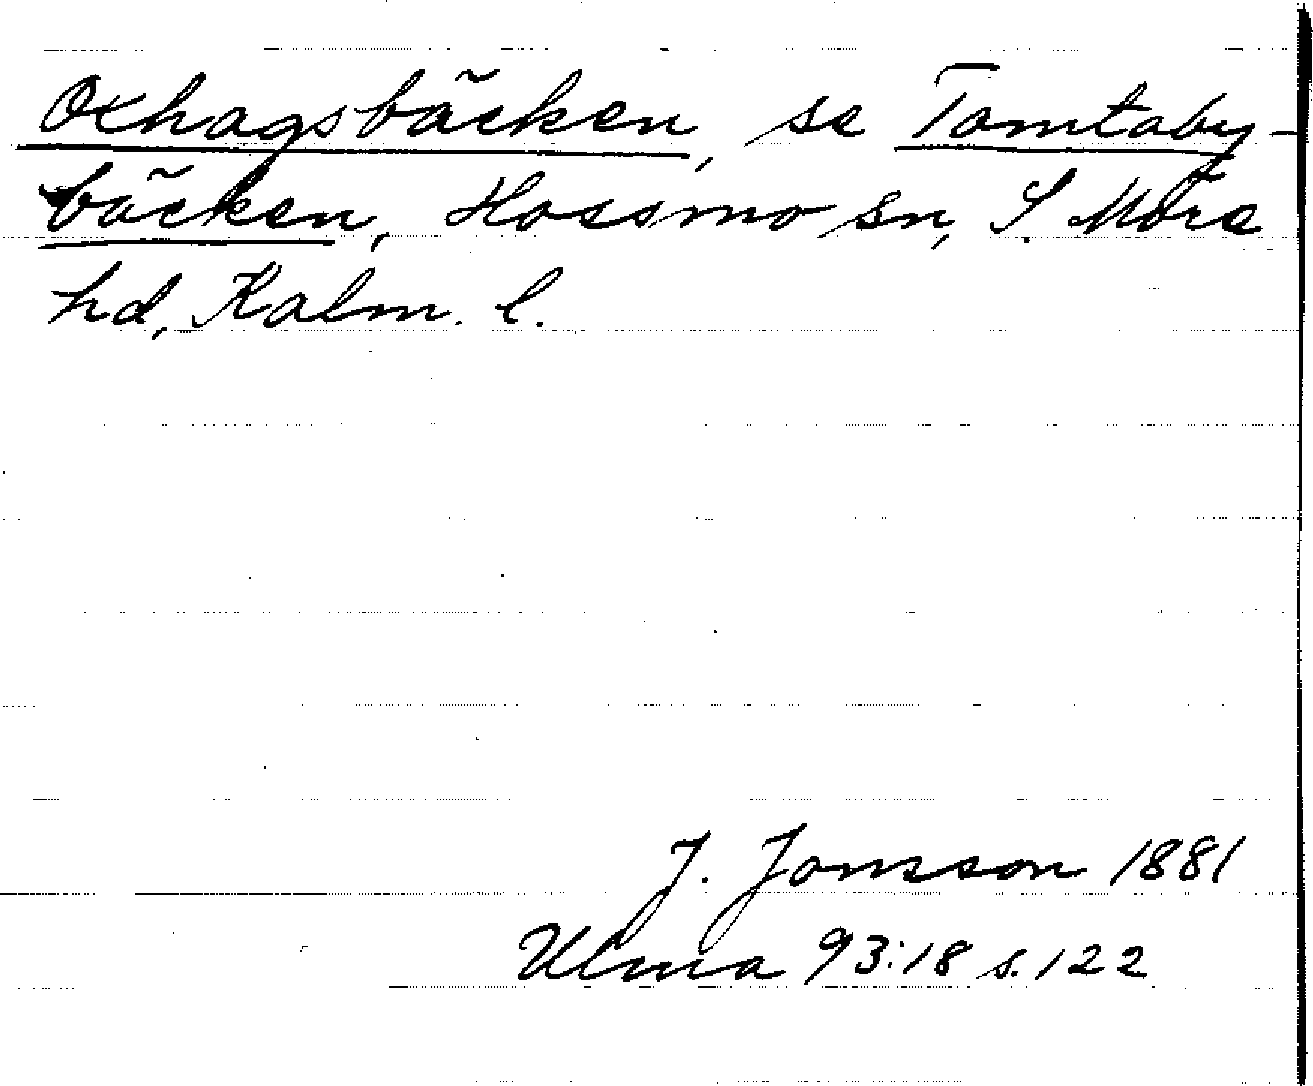 Oxhagsbäcken, se Tomtaby-
bäcken, Hossmo sn, S. Möre
hd, Kalm. l.
J. Jonsson 1881
Ulma 93:18 s. 122